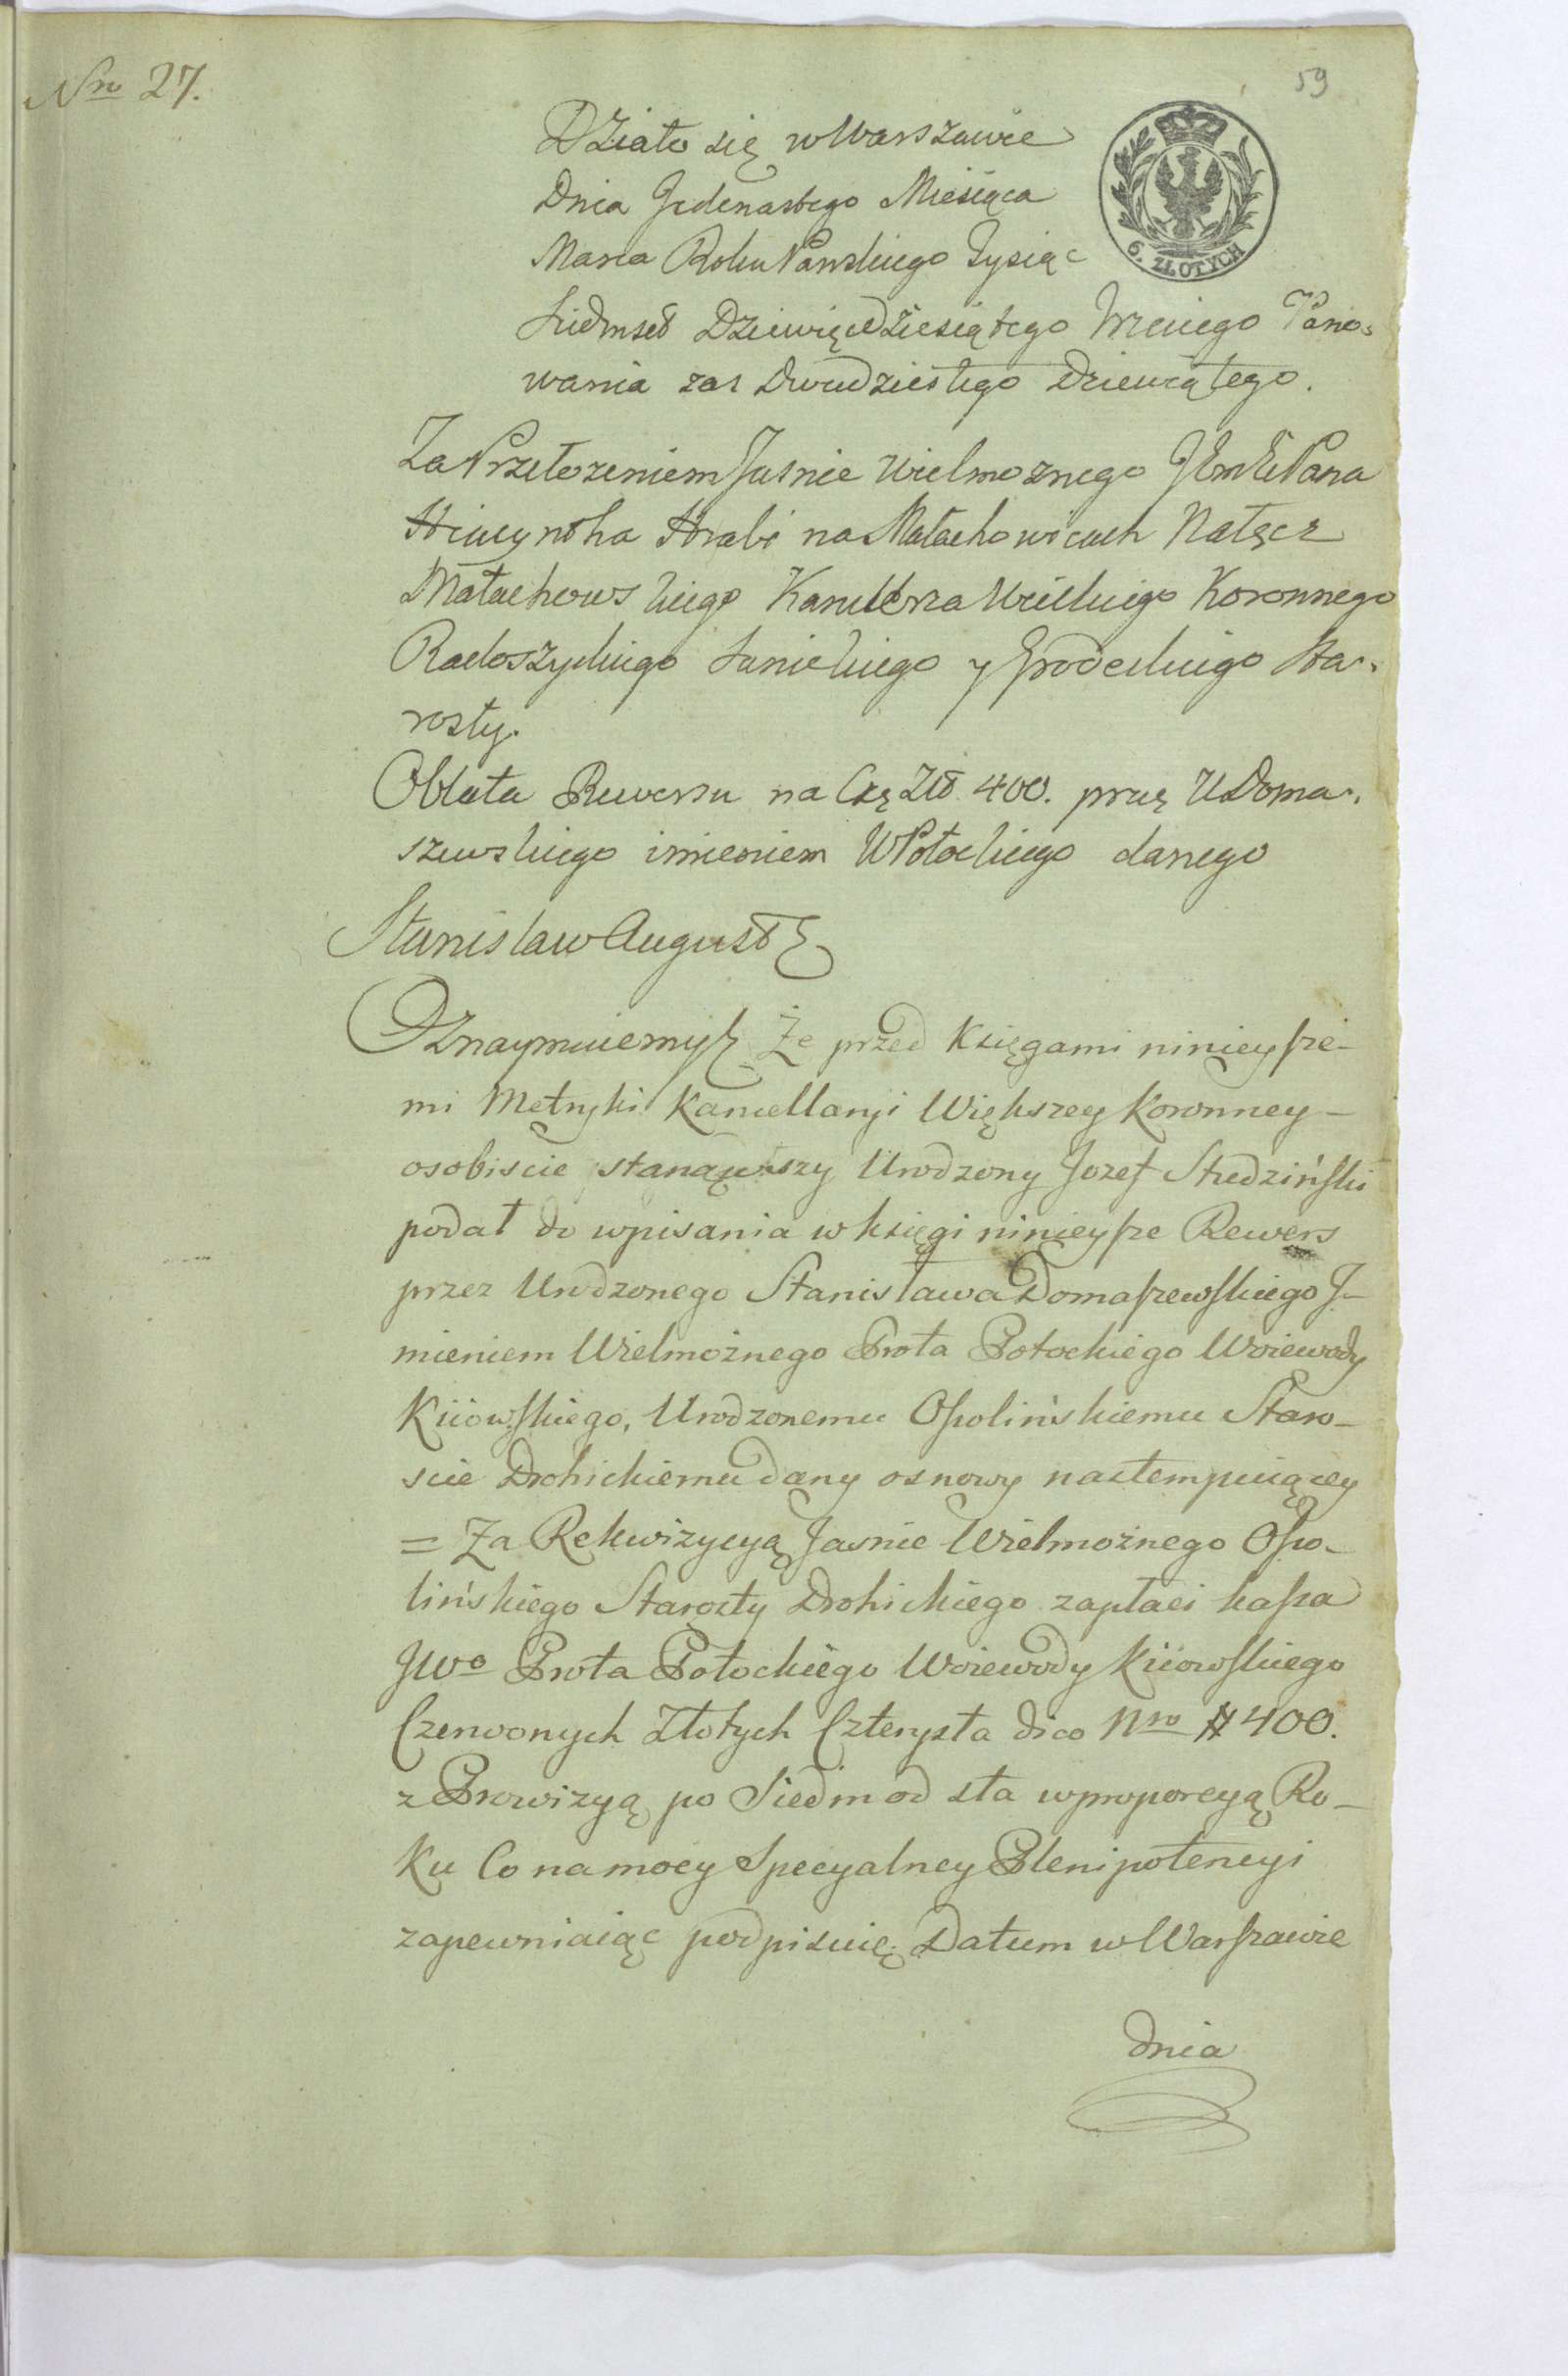 Nro 27.
59
Działo się w Warszawie
Dnia Jedenastego Miesiąca
Marca Roku Panskiego Tysiąc
Siedmset Dziewięcdziesiątego Trzeciego Pano-
wania zas Dwudziestego Dziewiątego.
6. ZŁOTYCH
Za Przełozeniem Jasnie Wielmoznego Pana
Hiacyntha Hrabi na Małachowicach Nałęcz
Małachowskiego Kanclerza Wielkiego Koronnego
Radoszyckiego Sanickiego y Grodeckiego Sta-
rosty.
Oblata Rewersu na Czę Złt 400. przez U Doma-
szewskiego imieniem W Potockiego danego
Stanisław August
Oznaymuiemy Że przed Księgami ninieyſze-
mi Metryki Kancellaryi Większey Koronney -
osobiscie stanąwszy Urodzony Jozef Studzińſki
podał do wpisania w księgi ninieyſze Rewers
przez Urodzonego Stanisława Domaſzewſkiego J-
mieniem Wielmożnego Prota Potockiego Woiewody
Kiiowſkiego, Urodzonemu Oſsolińskiemu Staro-
scie Drohickiemu dany osnowy nastempuiącey
= Za Rekwizycyą Jasnie Wielmożnego Oſso-
lińskiego Starosty Drohickiego zapłaci kaſsa
JWo Prota Potockiego Woiewody Kiiowſkiego
Czerwonych Złotych Czterysta dico Nro # 400.
z Prowizyą po Siedm od sta w proporcyą Ro-
ku Co na mocy Specyalney Plenipotencyi
zapewniaiąc podpisuię Datum w Warſzawie
dnia